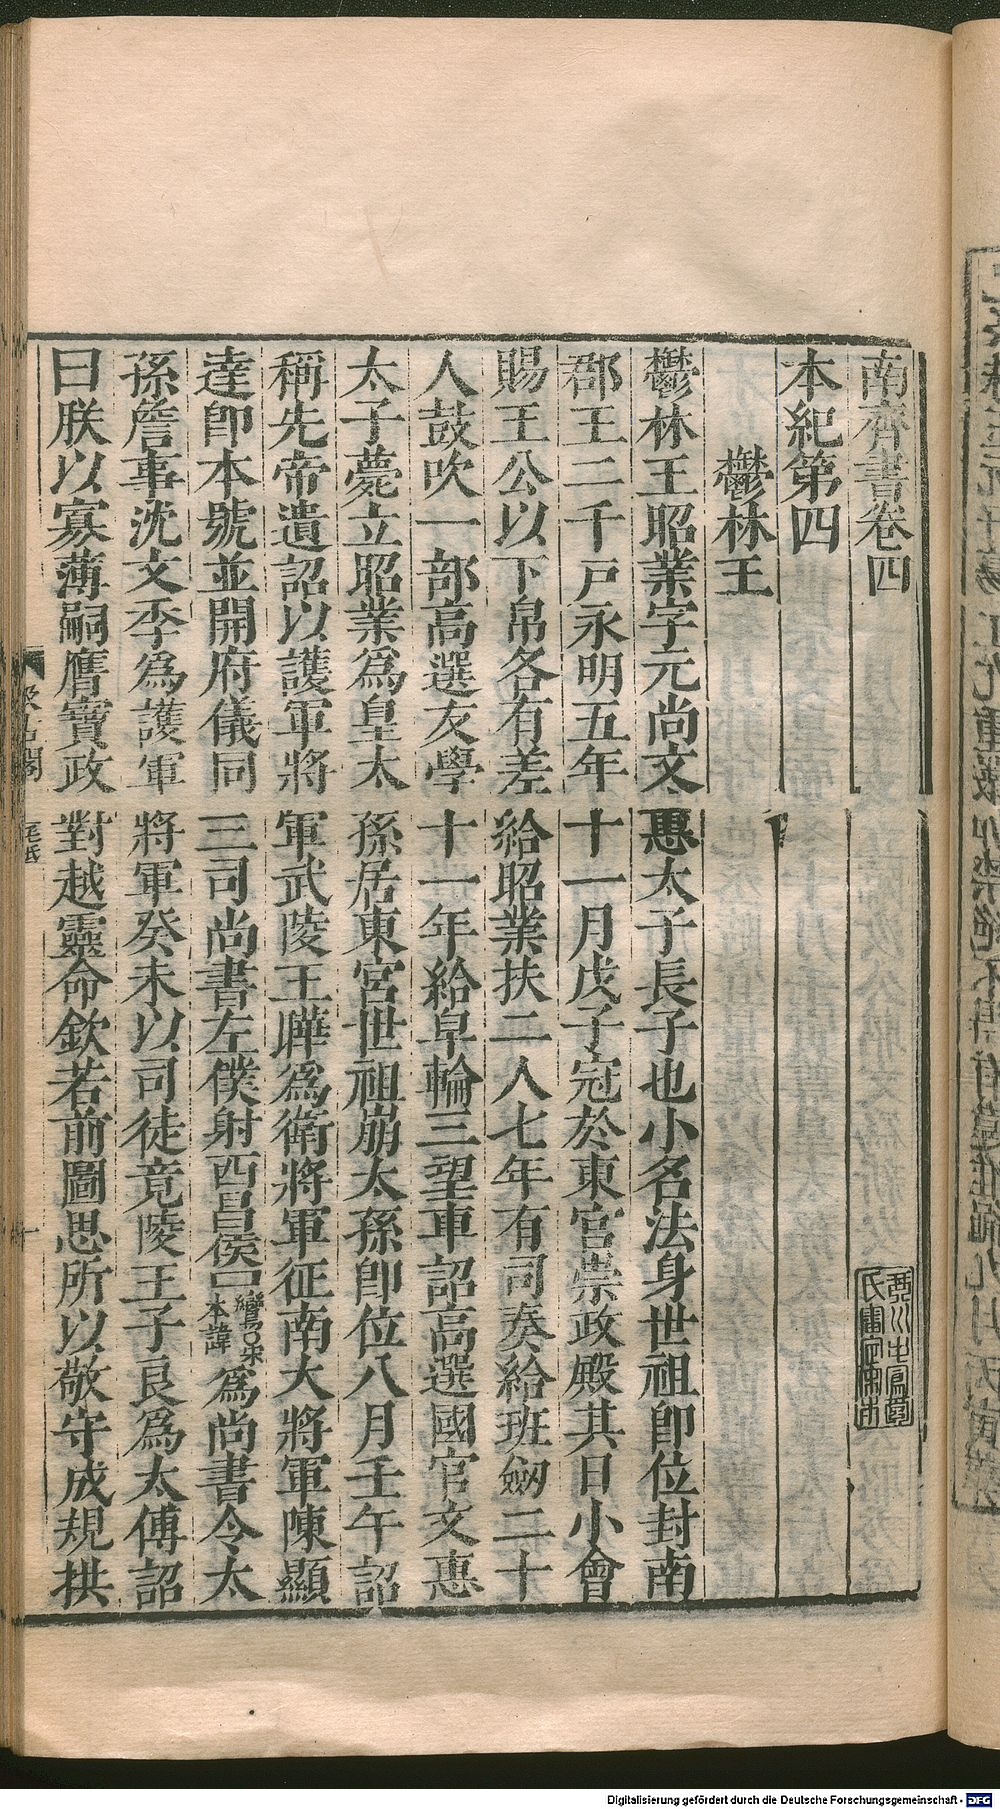 南齊書卷四
本紀第四
鬱林王
鬱林王昭業字元尚文惠太子長子也小名法身世祖即位封南
郡王二千戸永明五年十一月戊子冠於東宮崇政殿其日小會
賜王公以下帛各有差給昭業扶二人七年有司奏給班劒二十
人鼓吹一部高選友學十一年給皁輪三望車詔高選國官文惠
太子薨立昭業爲皇太孫居東宮世祖崩太孫即位八月壬午詔
稱先帝遺詔以護軍將軍武陵王曄爲衛將軍征南大將軍陳顯
達即本號並開府儀同三司尚書左僕射西昌侯鸞○宋本諱爲尚書令太
孫詹事沈文季爲護軍將軍癸未以司徒竟陵王子良爲太傅詔
曰朕以寡薄嗣膺寶政對越靈命欽若前圖思所以敬守成規拱
Digitalisierung gefördert durch die Deutsche Forschungsgemeinschaft - DFG